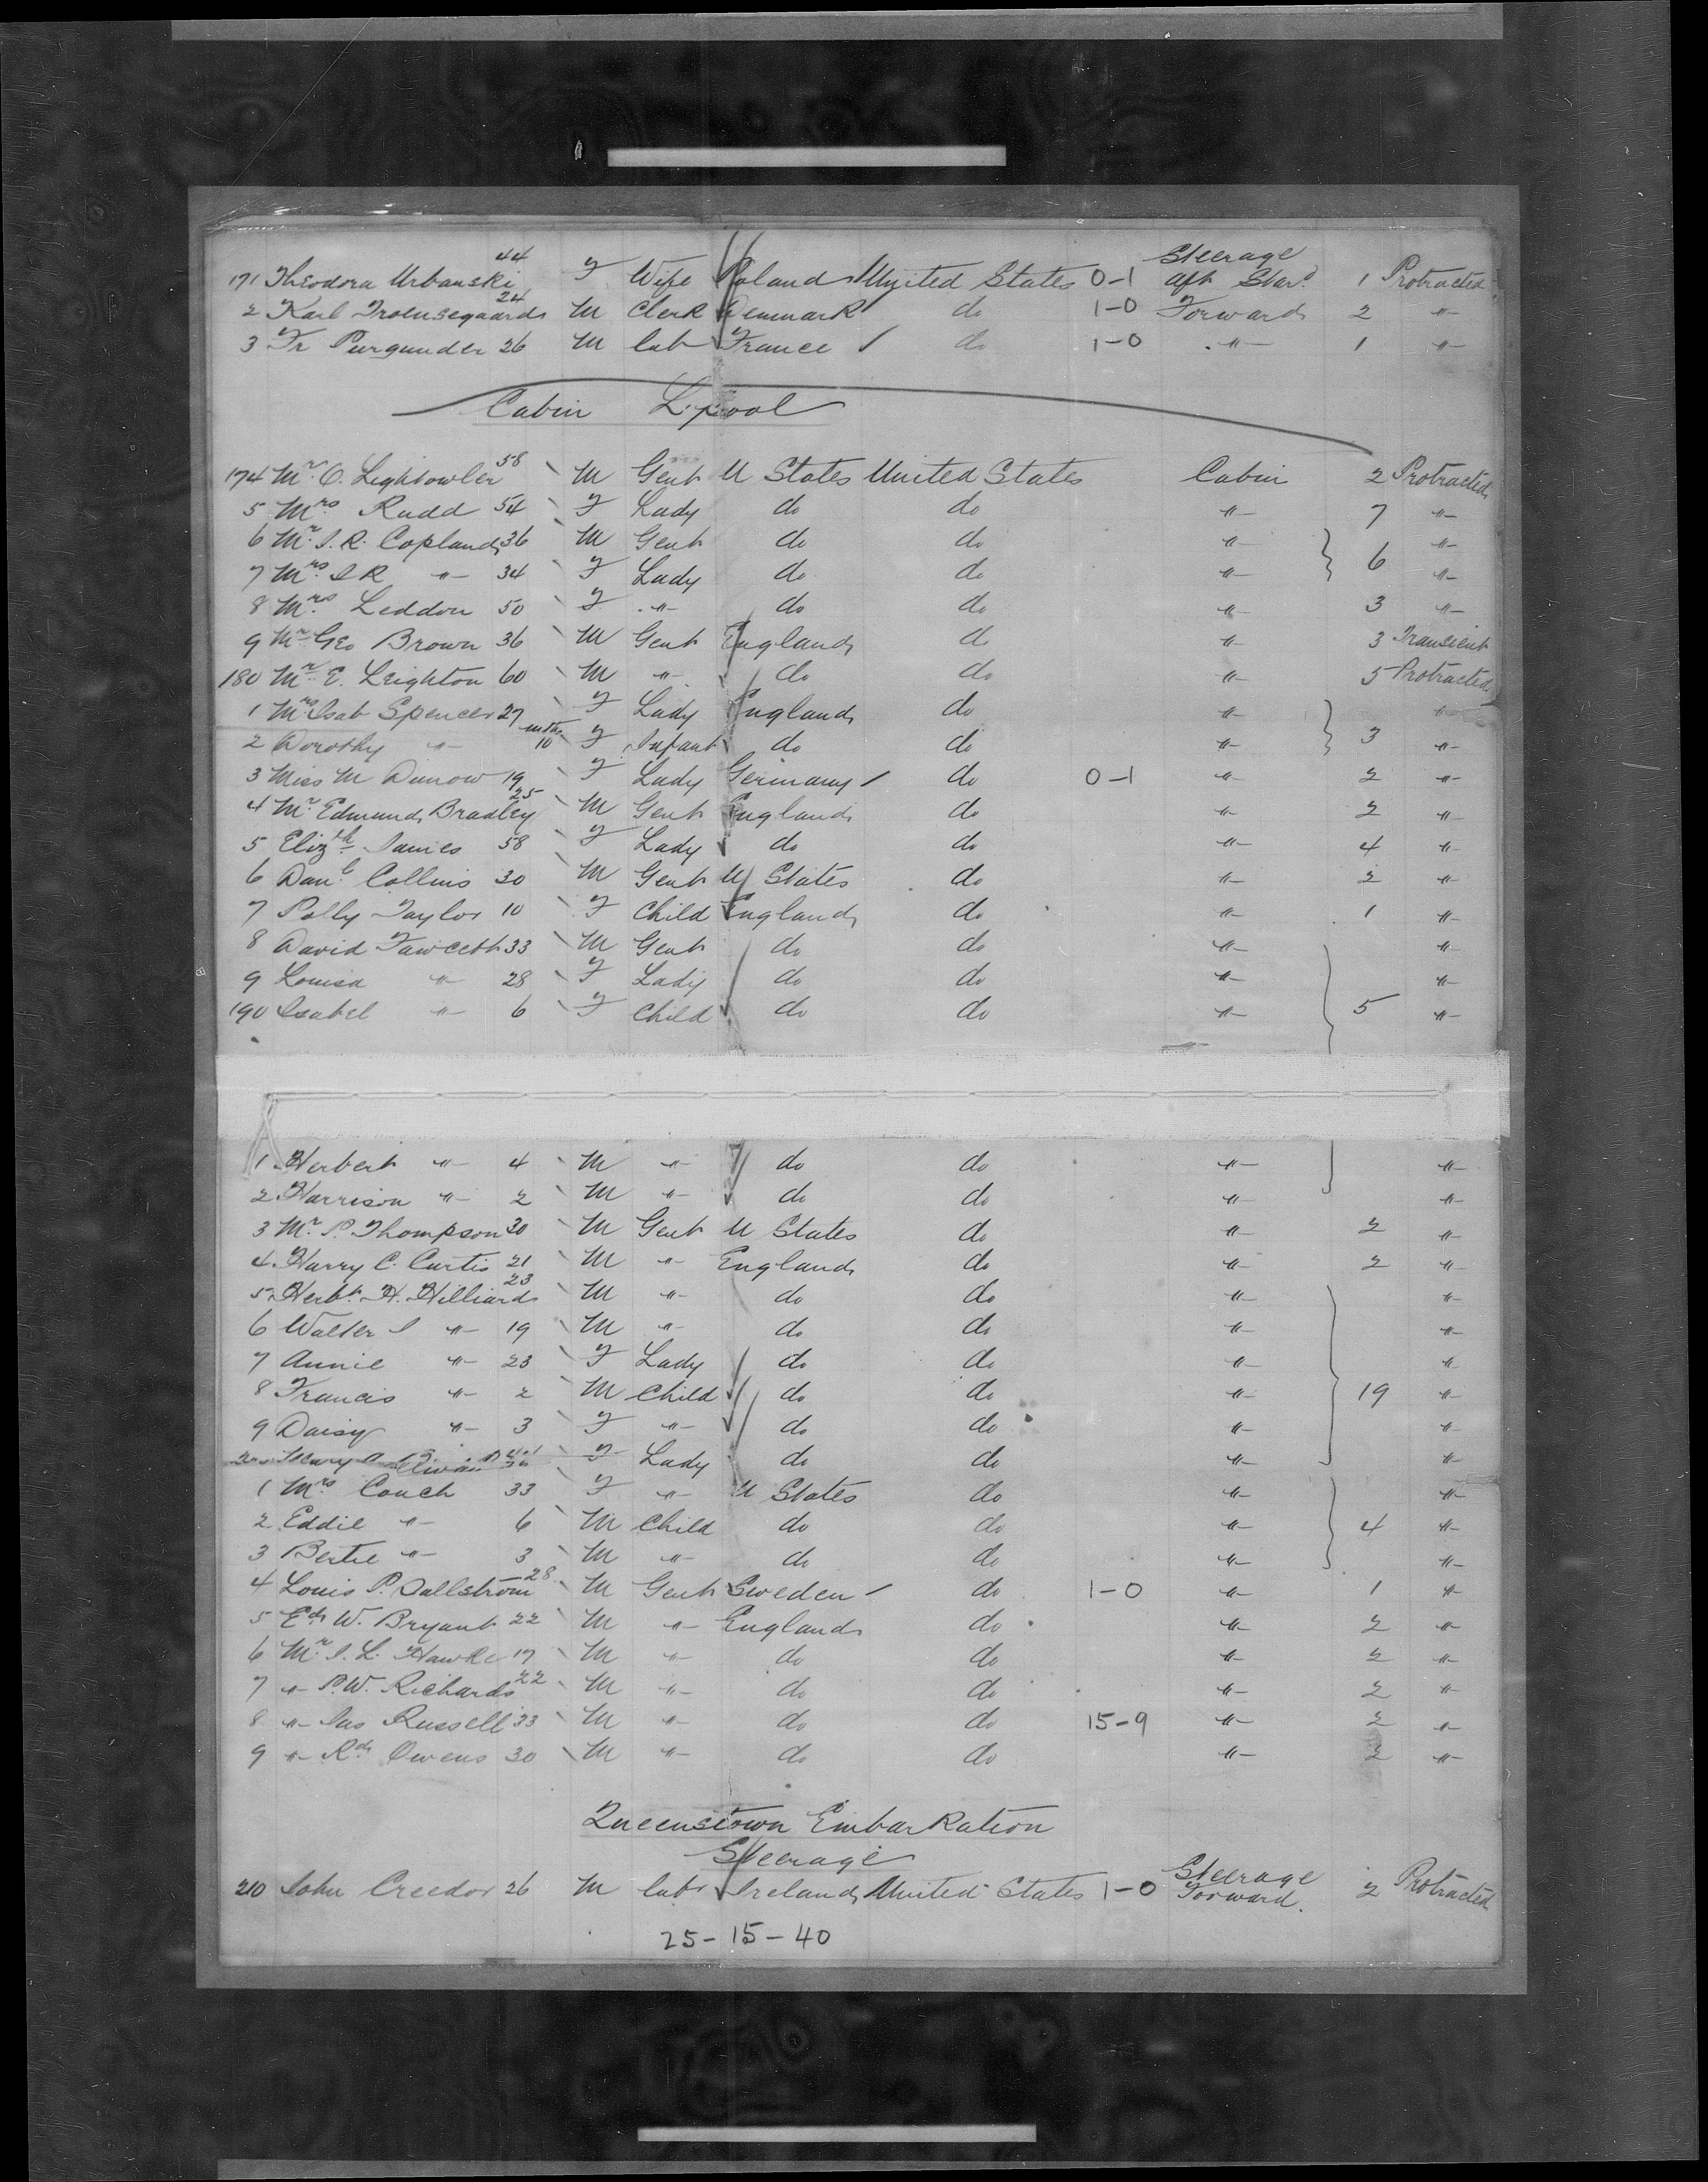 171 Theodora Urbanski 44 F Wife Poland United States 0-1 Steerage Aft Starb. 1 Protracted
2 Karl Troensegaard 24 M Clerk Denmark do 1-0 Forward 2 "
3 Fr Purgunder 26 M lab France / do 1-0 " 1 "
Cabin L.pool
174 Mr. O. Lightowler 58 M Gent U States United States Cabin 2 Protracted
5 Mrs. Rudd 54 F Lady do do " 7 "
6 Mr. J. R. Copland 36 M Gent do do " 6 "
7 Mrs. J R " 34 F Lady do do " "
8 Mrs. Leddon 50 F " do do " 3 "
9 Mr. Geo Brown 36 M Gent England do " 3 Transient
180 Mr. E. Leighton 60 M " do do " 5 Protracted
1 Mrs Isab Spencer 27 F Lady England do " "
2 Dorothy " mths 10 F Infant do do " 3 "
3 Miss M Dunow 19 F Lady Germany / do 0-1 " 2 "
4 Mr. Edmund Bradley 25 M Gent England do " 2 "
5 Elizth. James 58 F Lady do do " 4 "
6 Danl. Collins 30 M Gent U States do " 2 "
7 Polly Taylor 10 F Child England do " 1 "
8 David Fawcett 33 M Gent do do " "
9 Louisa " 28 F Lady do do " "
190 Isabel " 6 F Child do do " 5 "
1 Herbert " 4 M " do do " "
2 Harrison " 2 M " do do " "
3 Mr. P. Thompson 30 M Gent U States do " 2 "
4 Harry C. Curtis 21 M " England do " 2 "
5 Herbt. H. Hilliard 23 M " do do " "
6 Walter J " 19 M " do do " "
7 Annie " 23 F Lady do do " "
8 Francis " 2 M Child do do " 19 "
9 Daisy " 3 F " do do " "
Mary A F Lady do do " "
1 Mrs. Couch 33 F " U States do " "
2 Eddie " 6 M Child do do " 4 "
3 Bertie " 3 M " do do " "
4 Louis P. Dallstrom 28 M Gent Sweden / do 1-0 " 1 "
5 Ed. W. Bryant 22 M " England do " 2 "
6 Mr. J. L. Hawke 17 M " do do " 2 "
7 " P. W. Richards 22 M " do do " 2 "
8 " Jas Russell 33 M " do do 15-9 " 2 "
9 " Rd. Owens 30 M " do do " 2 "
Queenstown Embarkation
Steerage
210 John Creedon 26 M labr Ireland United States 1-0 Steerage Forward. 2 Protracted
25-15-40